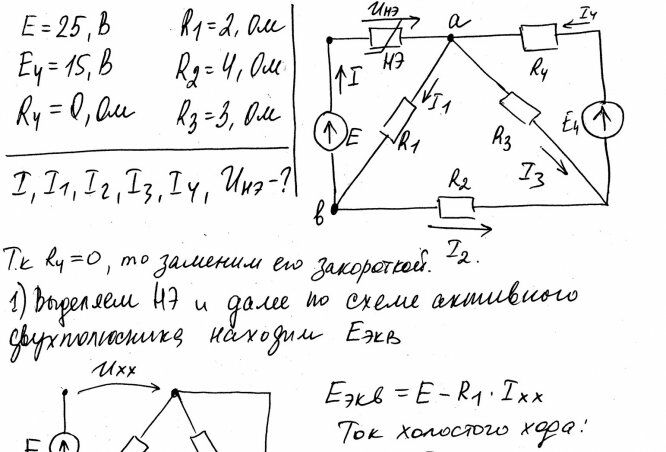 E = 25, В R1 = 2, Ом
E4 = 15, В R2 = 4, Ом
R4 = 0, Ом R3 = 3, Ом
I, I1, I2, I3, I4, Uнэ - ?
Uнэ
a
I4
НЭ
I
R4
E
I1
R1
R3
E4
I3
в
R2
I2
Т.к R4 = 0, то заменим его закороткой.
1) Выделяем НЭ и далее по схеме активного
двухполюсника находим Eэкв
Uхх
Eэкв = E - R1 · Iхх
Ток холостого хода:
E